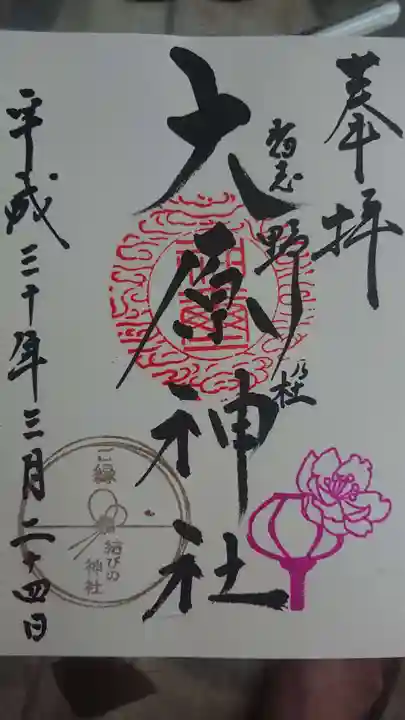 奉拝
大原神社
野乃杜
平成三十年三月二十四日
ご縁
結びの
神社